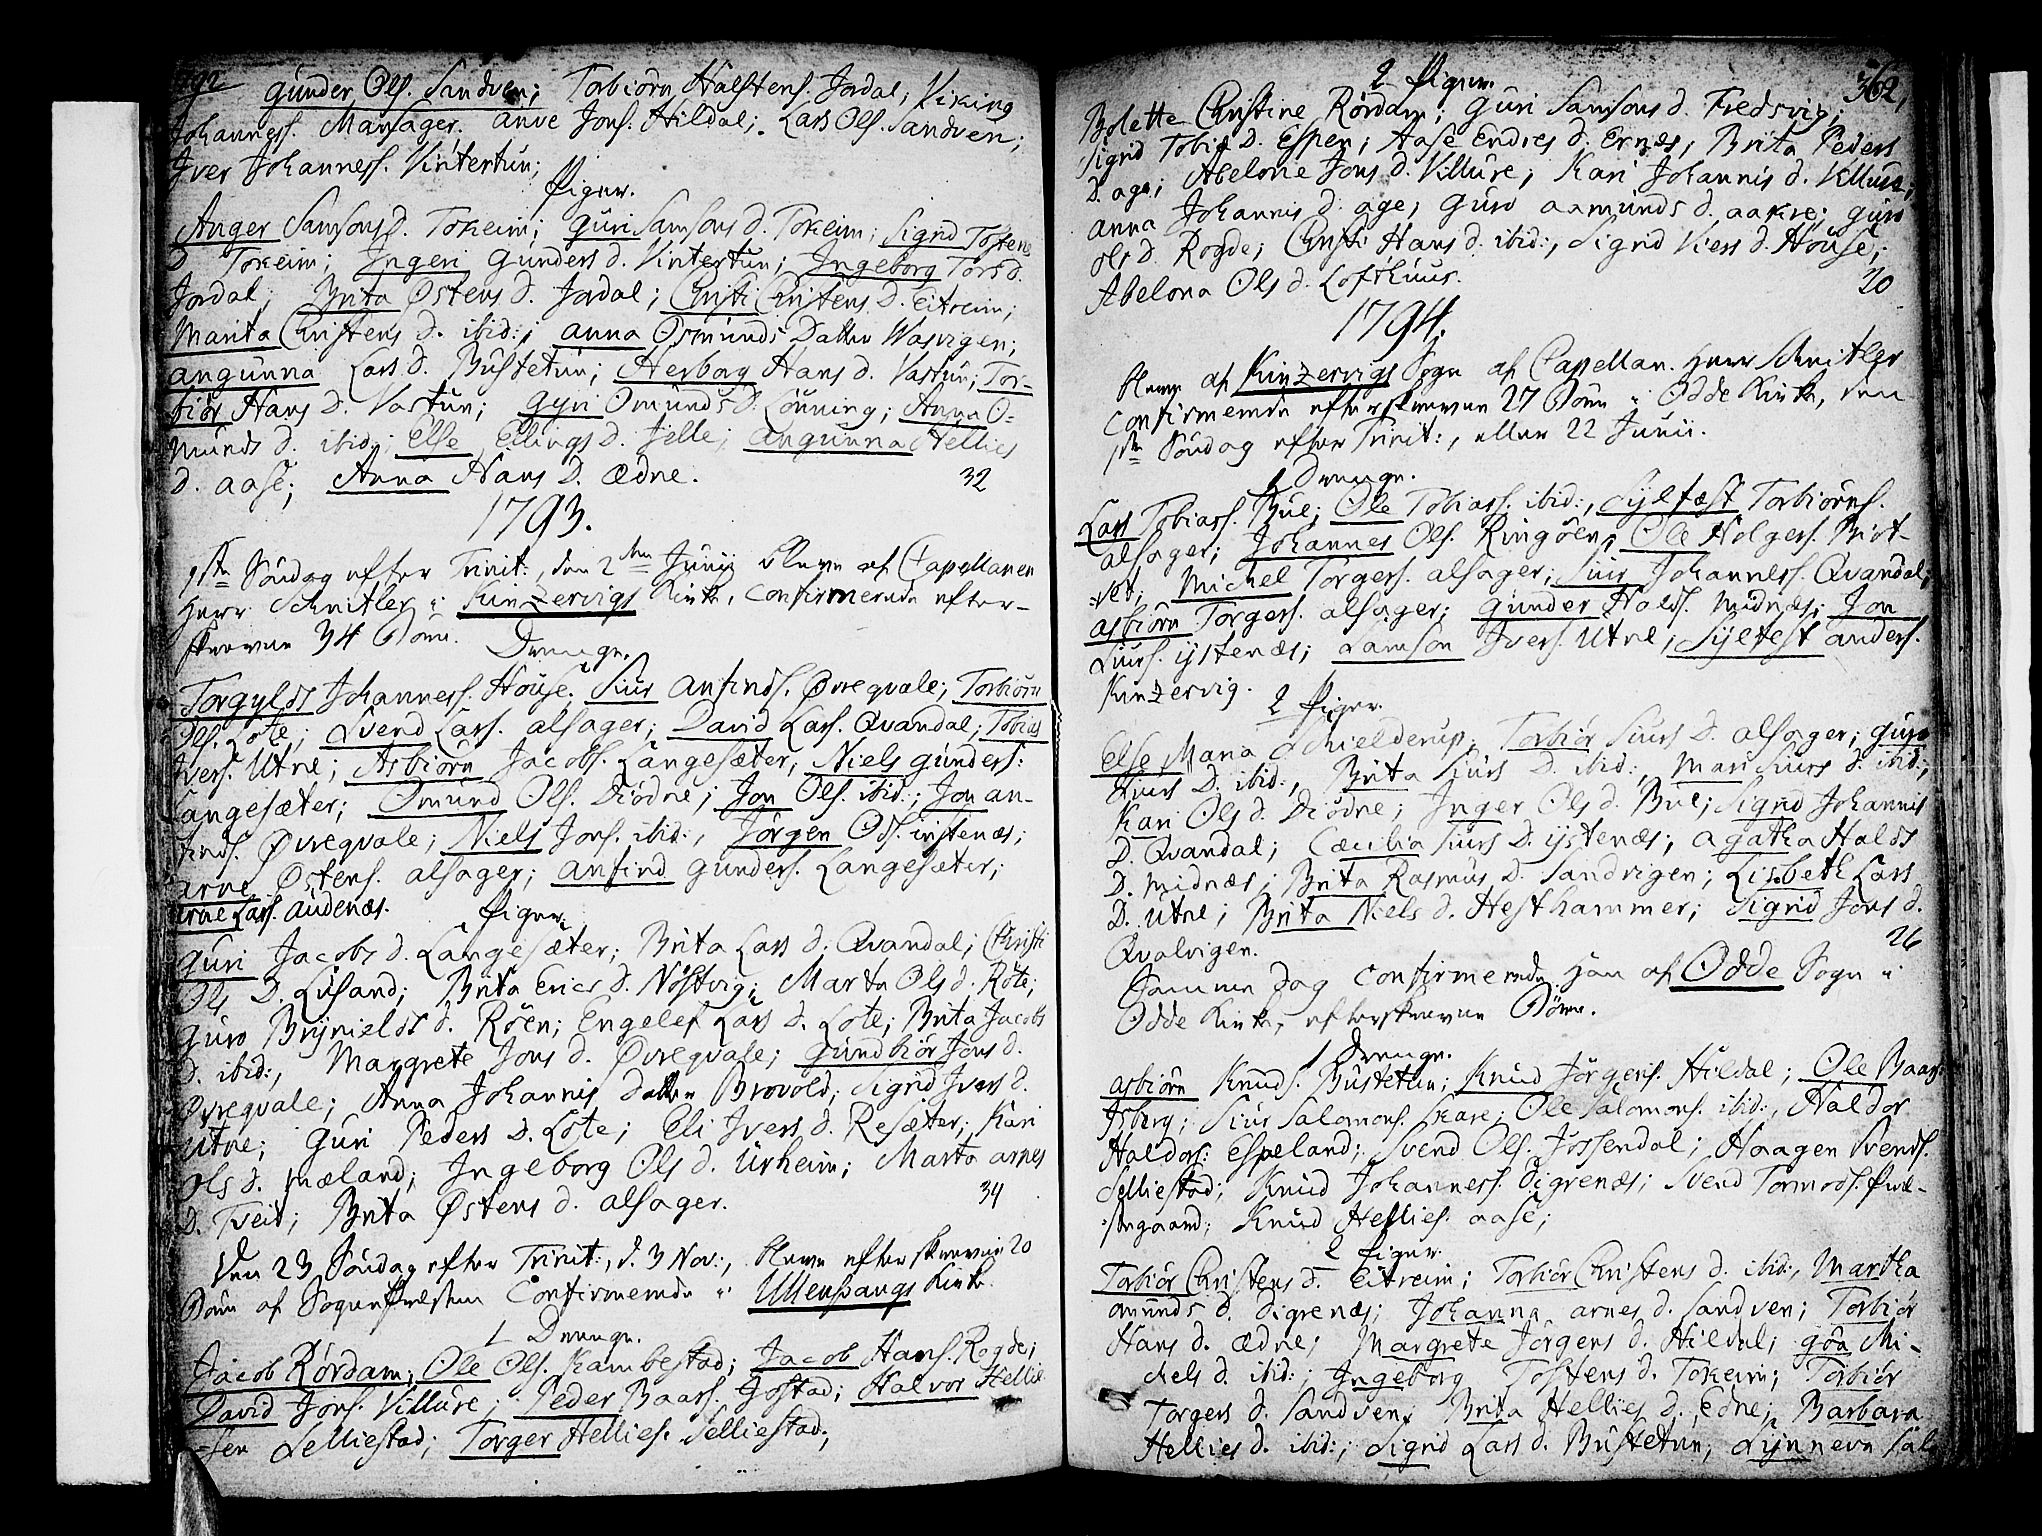 1792
Gunder Ols. Sandven; Torbiørn Halstens. Jordal; Viking
Johanness. Mansager. Arve Jons. Hildal; Lars Ols. Sandven;
Iver Johanness. Vintertun;
Piger.
Anger Samsons d. Tokeim; Guri Samsons d. Tokeim; Sigrid Tostens
D. Tokeim; Ingeri Gunders d. Vintertun; Ingeborg Tors d.
Jordal; Brita Østens d. Jordal; Christi Christens d. Eitreim;
Marita Christens d. ibid:; Anna Osmunds Datter Wasvigen;
Angunna Lars d. Bustetun; Herborg Hans d. Vastun; Tor-
biør Hans d. Vastun; Gyri Omunds d. Lønning; Anna O-
munds d. ibid:; Else Ellings d. Jelle; Angunna Hellies
d. Aase; Anna Hans D. Ædne. 32
1793.
1ste Søndag efter Trinit:, den 2den Junij bleve af Capellanen
Herr Schnitler i Kinzervigs Kirke, Confirmerede efter-
skrevne 34 Børn.
Drenge.
Torgylds Johanness. House. Siur Anfinds. Øvreqvale; Torbiørn
Ols. Lote; Svend Lars. Alsager; David Lars. Qvandal; Tobias
Ivers. Utne; Asbiørn Jacobs. Langesæter; Niels Gunders:
Langesæter; Omund Ols. Diødne; Jon Ols. ibid:; Jon An-
finds. Øvreqvale; Niels Jons. ibid:, Jørgen Ods. istenæs;
Arne Østens. Alsager; Anfind Gunders. Langesæter;
Arne Lars. Audenæs.
Piger.
Guri Jacobs d. Langesæter; Brita Lars d. Qvandal; Christi
Ols D. Lusand; Brita Erics d. Nøstvig; Marta Ols d. Røte;
Guro Brynields d. Røen; Engelef Lars d. Lote; Brita Jacobs
d. ibid:, Margrete Jons d. Øvreqvale; Gundbiør Jons d.
Øvreqvale; Anna Johannis Datter Brovold; Sigrid Ivers d.
Utne; Guri Peders D. Lote; Eli Ivers d. Resæter; Kari
Ols d. Mæland; Ingeborg Ols d. Urheim; Marta Arnes
D. Tveit; Brita Østens d. Alsager. 34
Den 23 Søndag efter Trinit:, d. 3 Nov:, bleve efterskrevne 20
Børn af Sognepræsten Confirmerede i Ullensvangs Kirke.
1 Drenge.
Jacob Rørdam; Ole Ols. Kambestad; Jacob Hans. Rogde;
David Jons. Villure; Peder Baars. Jostad; Halvor Hellie-
sen Selliestad; Torger Hellies. Selliestad;
362,
2 Piger.
Bolette Christine Rørdam; Guri Samsons d. Fredsvig;
Sigrid Tobias D. Espen; Aase Endres d. Ernæs; Brita Peders
D. Age; Abelone Jons d. Villure; Kari Johannis d. Villure;
Anna Johannis d. Age; Guro Aamunds d. Aakre; Guro
Ols d. Rogde; Christi Hans d. ibid:, Sigrid Viers d. House;
Abelona Ols d. Lofthuus. 20
1794.
bleve af Kinzervigs Sogn af Capellan. Herr Schnitler
Confirmerede efterskrevne 27 Børn i Odde Kirke, den
1ste Søndag efter Trinit:, eller 22 Junii.
1 Drenge.
Lars Tobiass. Bue; Ole Tobiass. ibid:, Sylfæst Torbiørns.
Alsager; Johannes Ols. Ringøen; Ole Holgers. Brot-
vet; Michel Torgers. Alsager; Siur Johanness. Qvandal;
Asbiørn Torgers. Alsager; Gunder Halds. Midnæs; Jon
Siurs. ystenæs; Samson Ivers. Utne; Sylfest Anders.
Kinzervig.
2 Piger.
Else Maria Schielderup; Torbiør Siurs D. Alsager; Guro
Siurs D. ibid:, Brita Siurs D. ibid:, Mari Siurs d. ibid:,
Kari Ols d. Diødne; Inger Ols d. Bue; Sigrid Johannis
D. Qvandal; Cæcilia Siurs D. ystenæs; Agatha Halds
D. Midnæs; Brita Rasmus D. Sandvigen; Lisbeth Lars
D. Utne; Brita Niels d. Hesthammer; Sigrid Jons d.
Qvalvigen. 26
Samme Dag Confirmerede Han af Odde Sogn i
Odde Kirke, efterskrevne Børn.
1 Drenge.
Asbiørn Knuds. Bustetun; Knud Jørgens. Hildal; Ole Baars.
Isberg; Siur Salomons. Skare; Ole Salomons. ibid:, Haldor
Haldors: Espeland; Svend Ols. Jøssendal; Haagen Svends.
Selliestad; Knud Johanness. Digrenæs; Svend Tormods. Præ-
stegaard; Knud Hellies. Aase;
2 Piger.
Torbiør Christens d. Eitreim; Torbiør Christens d. ibid:, Martha
Omunds d. Digrenæs; Johanna Arnes d. Sandven; Torbiør
Hans d. Ædne; Margrete Jørgens d. Hildal; Gøa Mi-
chels d. ibid:; Ingeborg Tostens d. Tokeim; Torbiør
Torgers d. Sandven; Brita Hellies d. Edne; Barbara
Hellies d. ibid:; Sigrid Lars d. Bustetun; Synneva Sal